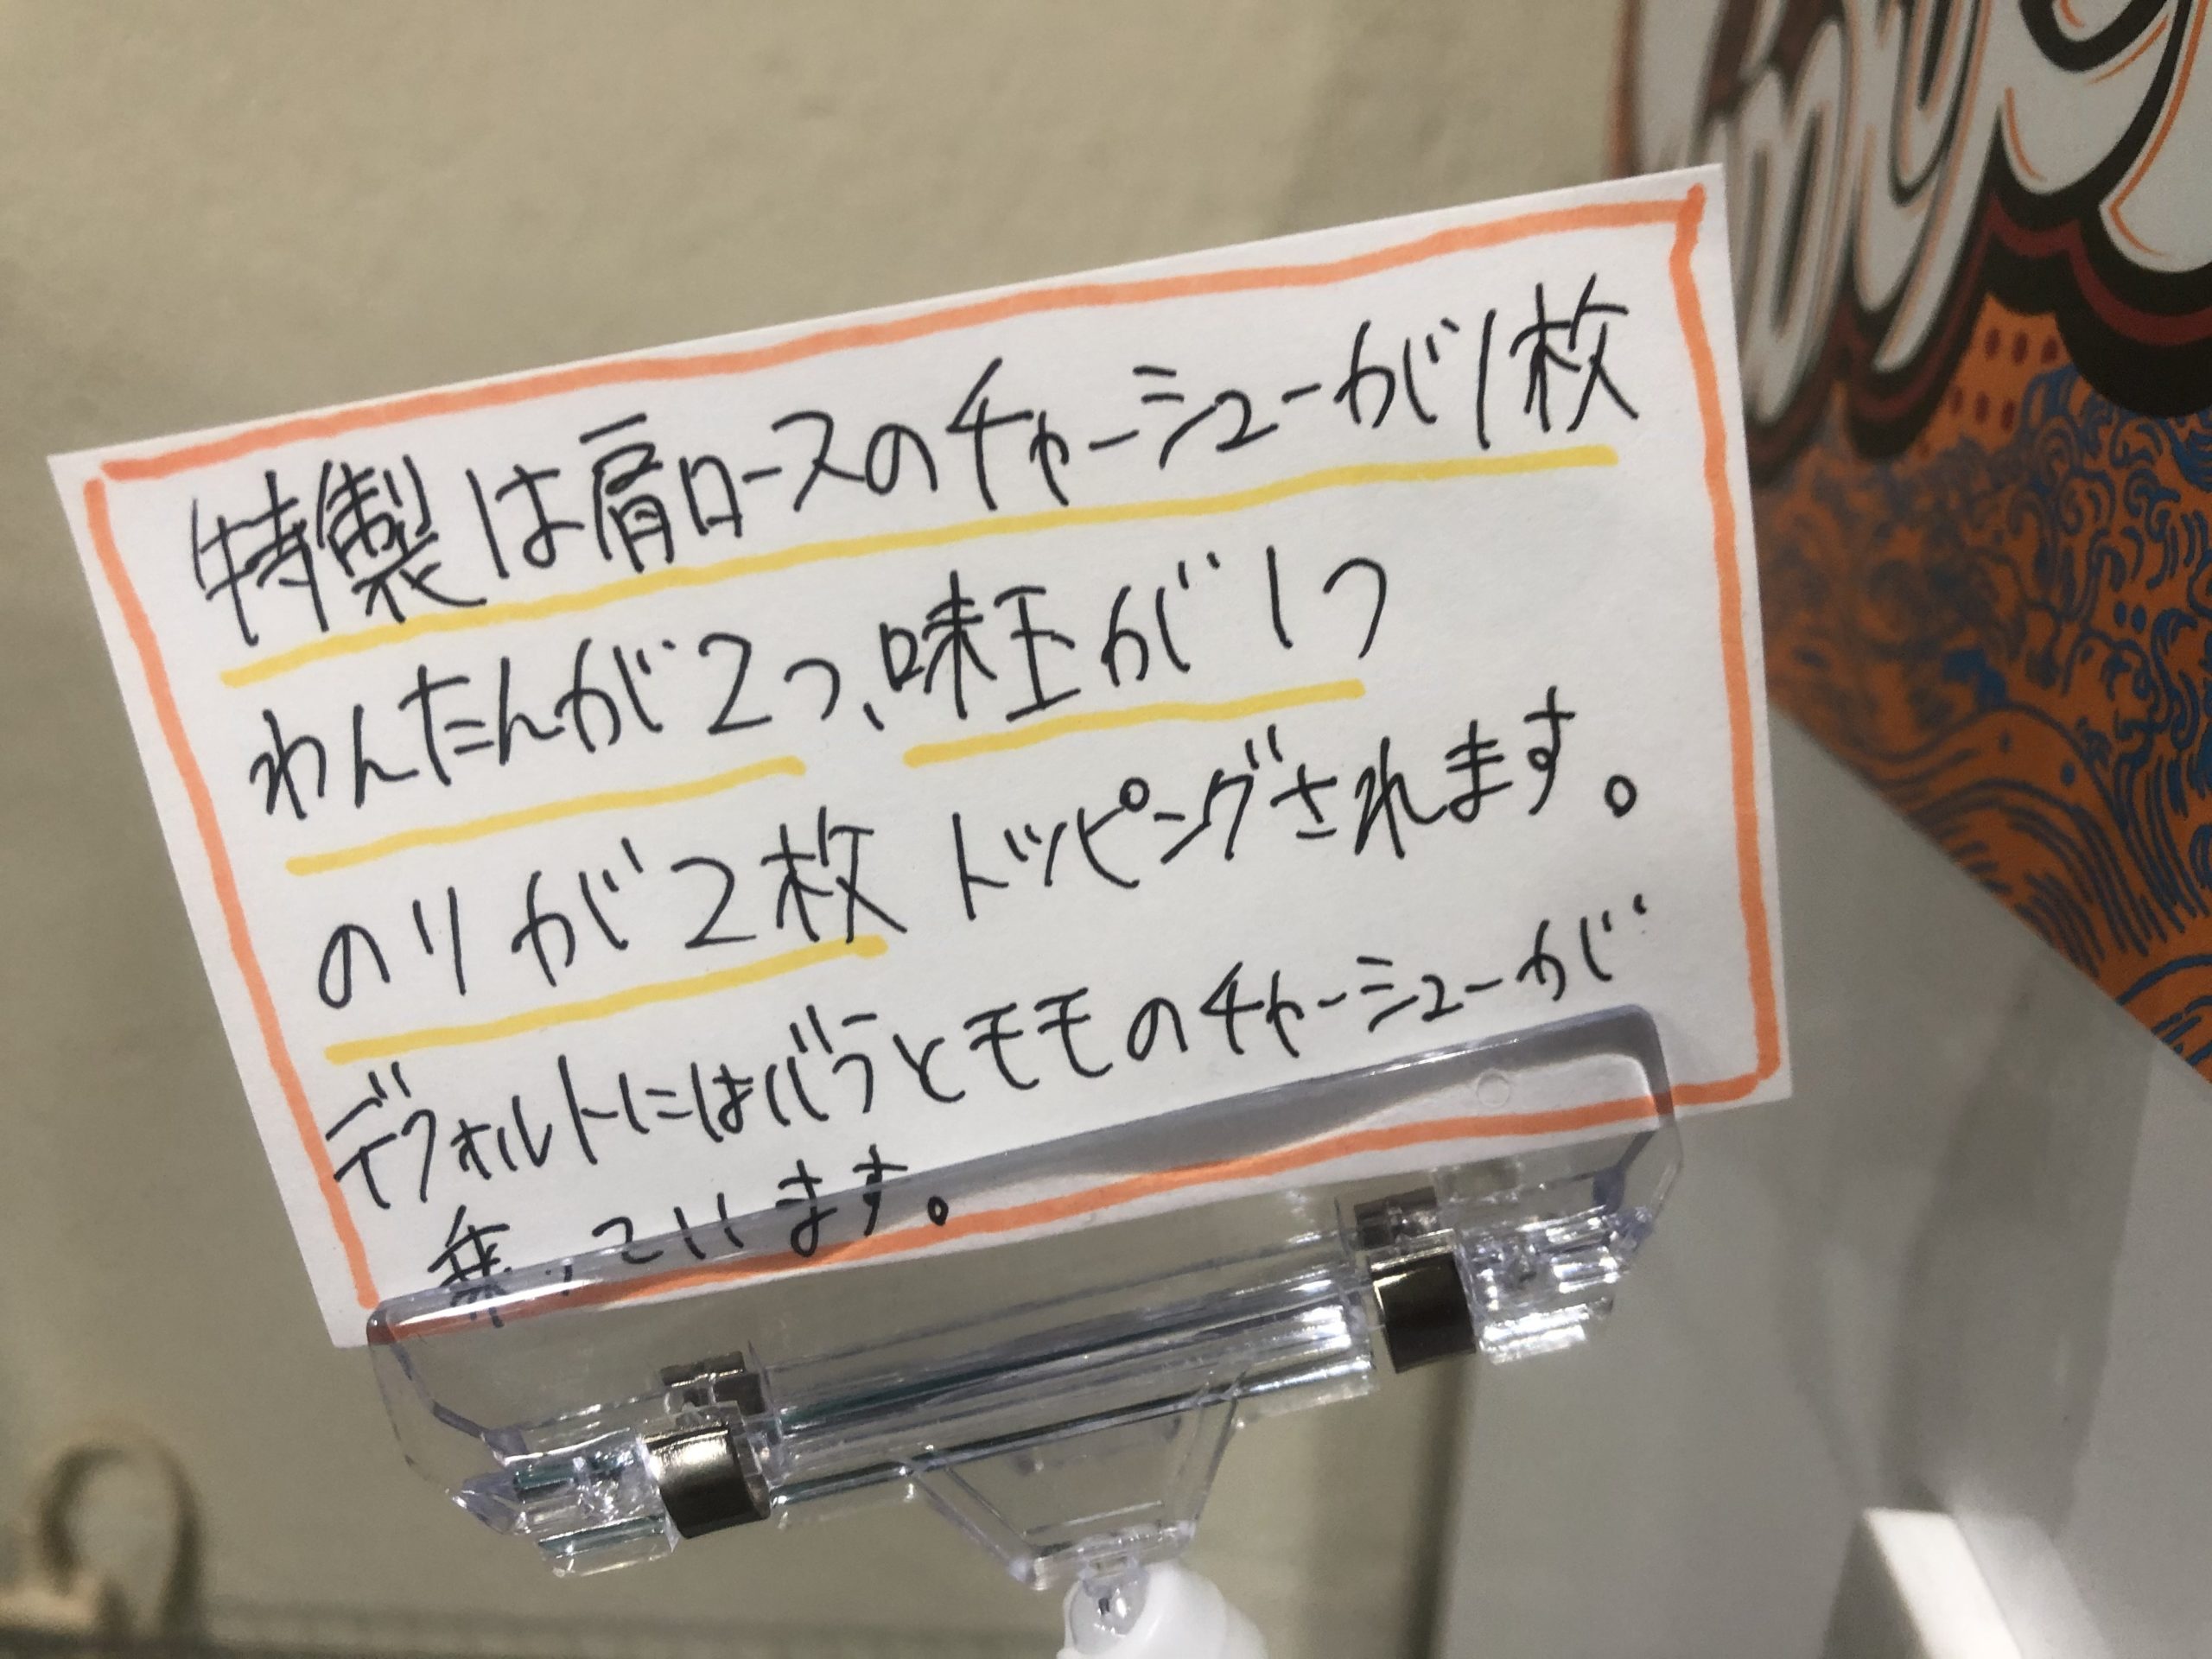 特製は肩ロースのチャーシューが1枚
わんたんが2つ、味玉が1つ
のりが2枚 トッピングされます。
デフォルトにはバラとモモのチャーシューが
乗っています。